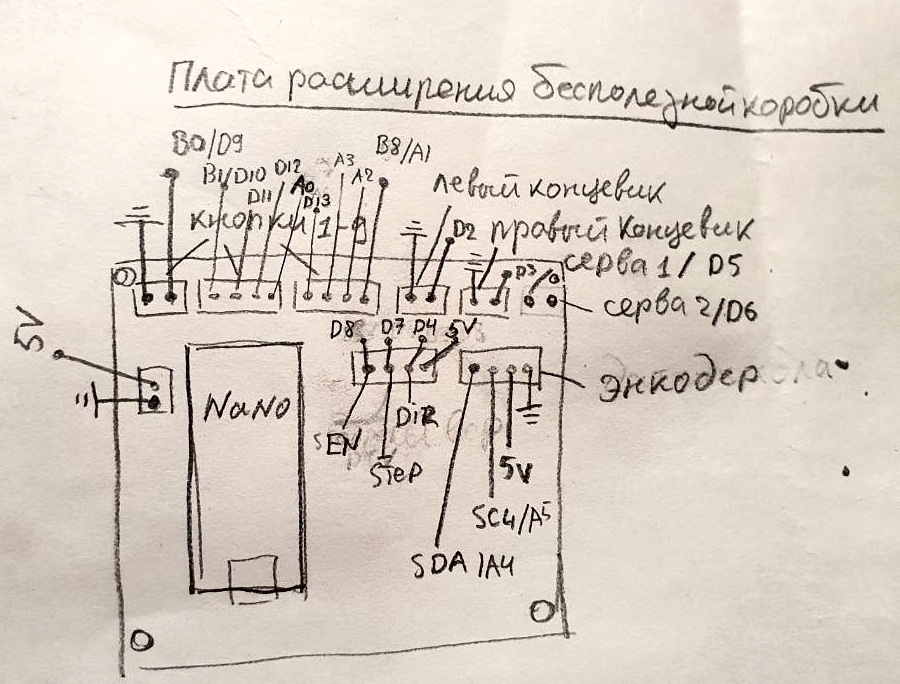 Плата расширения бесполезной коробки
B0/D9
B1/D10
D11
D12
A0
D13
A3
A2
B8/A1
кнопки 1-9
левый концевик
D2
правый концевик
D3
серва 1/D5
серва 2/D6
5V
NaNO
D8
D7
D4
5V
EN
STeP
DiR
энкодер
5V
SC4/A5
SDA/A4